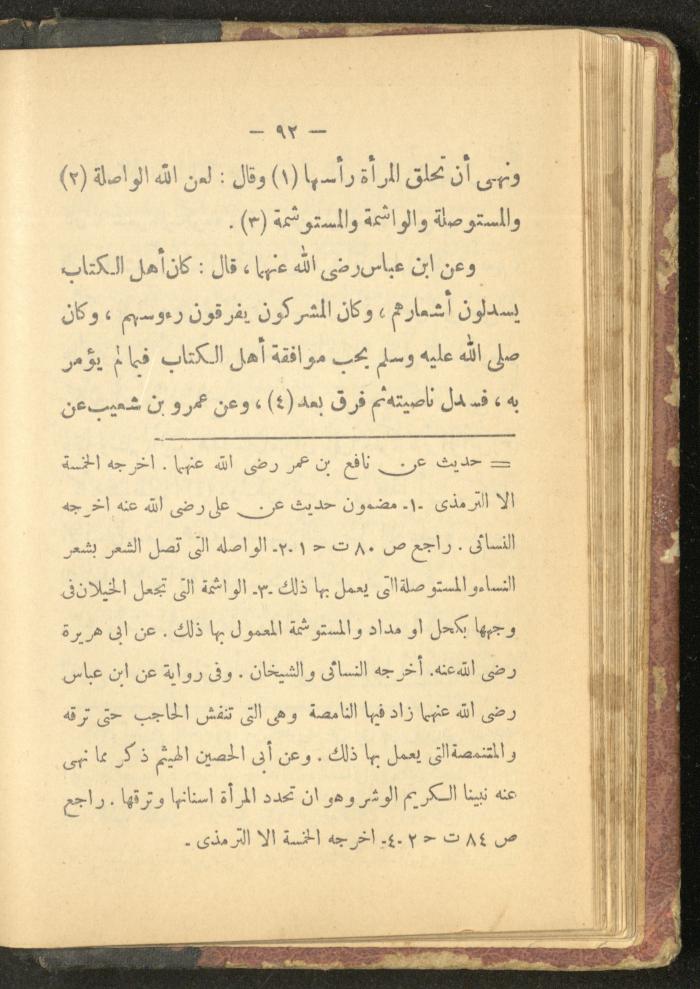 — ٩٢ —
ونهى أن تحلق المرأة رأسها (١) وقال : لعن الله الواصلة (٢)
والمستوصلة والواشمة والمستوشمة (٣) .
وعن ابن عباس رضى الله عنهما ، قال : كان أهل الكتاب
يسدلون أشعارهم ، وكان المشركون يفرقون رءوسهم ، وكان
صلى الله عليه وسلم يحب موافقة أهل الكتاب فيما لم يؤمر
به ، فسدل ناصيته ثم فرق بعد (٤) ، وعن عمرو بن شعيب عن
= حديث عن نافع بن عمر رضى الله عنهما . اخرجه الخمسة
الا الترمذى -١- مضمون حديث عن على رضى الله عنه اخرجه
النسائى . راجع ص ٨٠ ت ح ١ -٢- الواصله التى تصل الشعر بشعر
النساء والمستوصلة التى يعمل بها ذلك -٣- الواشمة التى تجعل الخيلان فى
وجهها بكحل او مداد والمستوشمة المعمول بها ذلك . عن ابى هريرة
رضى الله عنه . أخرجه النسائى والشيخان . وفى رواية عن ابن عباس
رضى الله عنهما زاد فيها النامصة وهى التى تنقش الحاجب حتى ترقه
والمتنمصة التى يعمل بها ذلك . وعن أبى الحصين الهيثم ذكر مما نهى
عنه نبينا الكريم الوشر وهو ان تحدد المرأة اسنانها وترقها . راجع
ص ٨٤ ت ح ٢ -٤- اخرجه الخمسة الا الترمذى .